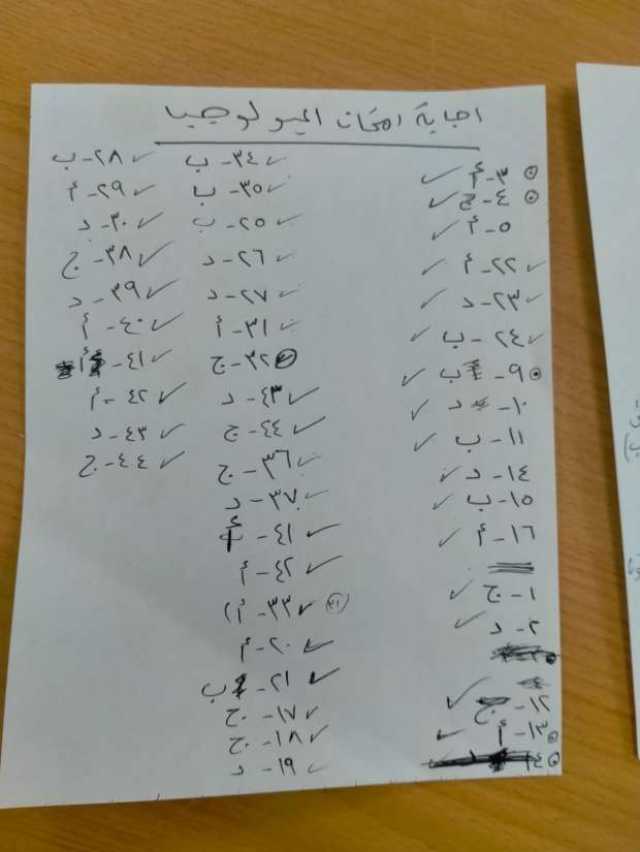 اجابة امتحان الجيولوجيا
٣- أ
٤- ج
٥- أ
٢٢- أ
٢٣- د
٢٤- ب
٩- ب
١٠- د
١١- ب
١٤- د
١٥- ب
١٦- أ
١- ج
٢- د
١٢- ج
١٣- أ
٣٤- ب
٣٥- ب
٢٥- ب
٢٦- د
٢٧- د
٣١- أ
٣٢- ج
٤٣- د
٤٤- ج
٣٦- ج
٣٧- د
٤١- أ
٤٢- أ
٣٣- أ
٢٠- أ
٢١- ب
١٧- ج
١٨- ج
١٩- د
٢٨- ب
٢٩- أ
٣٠- د
٣٨- ج
٣٩- د
٤٠- أ
٤١- أ
٤٢- أ
٤٣- د
٤٤- ج